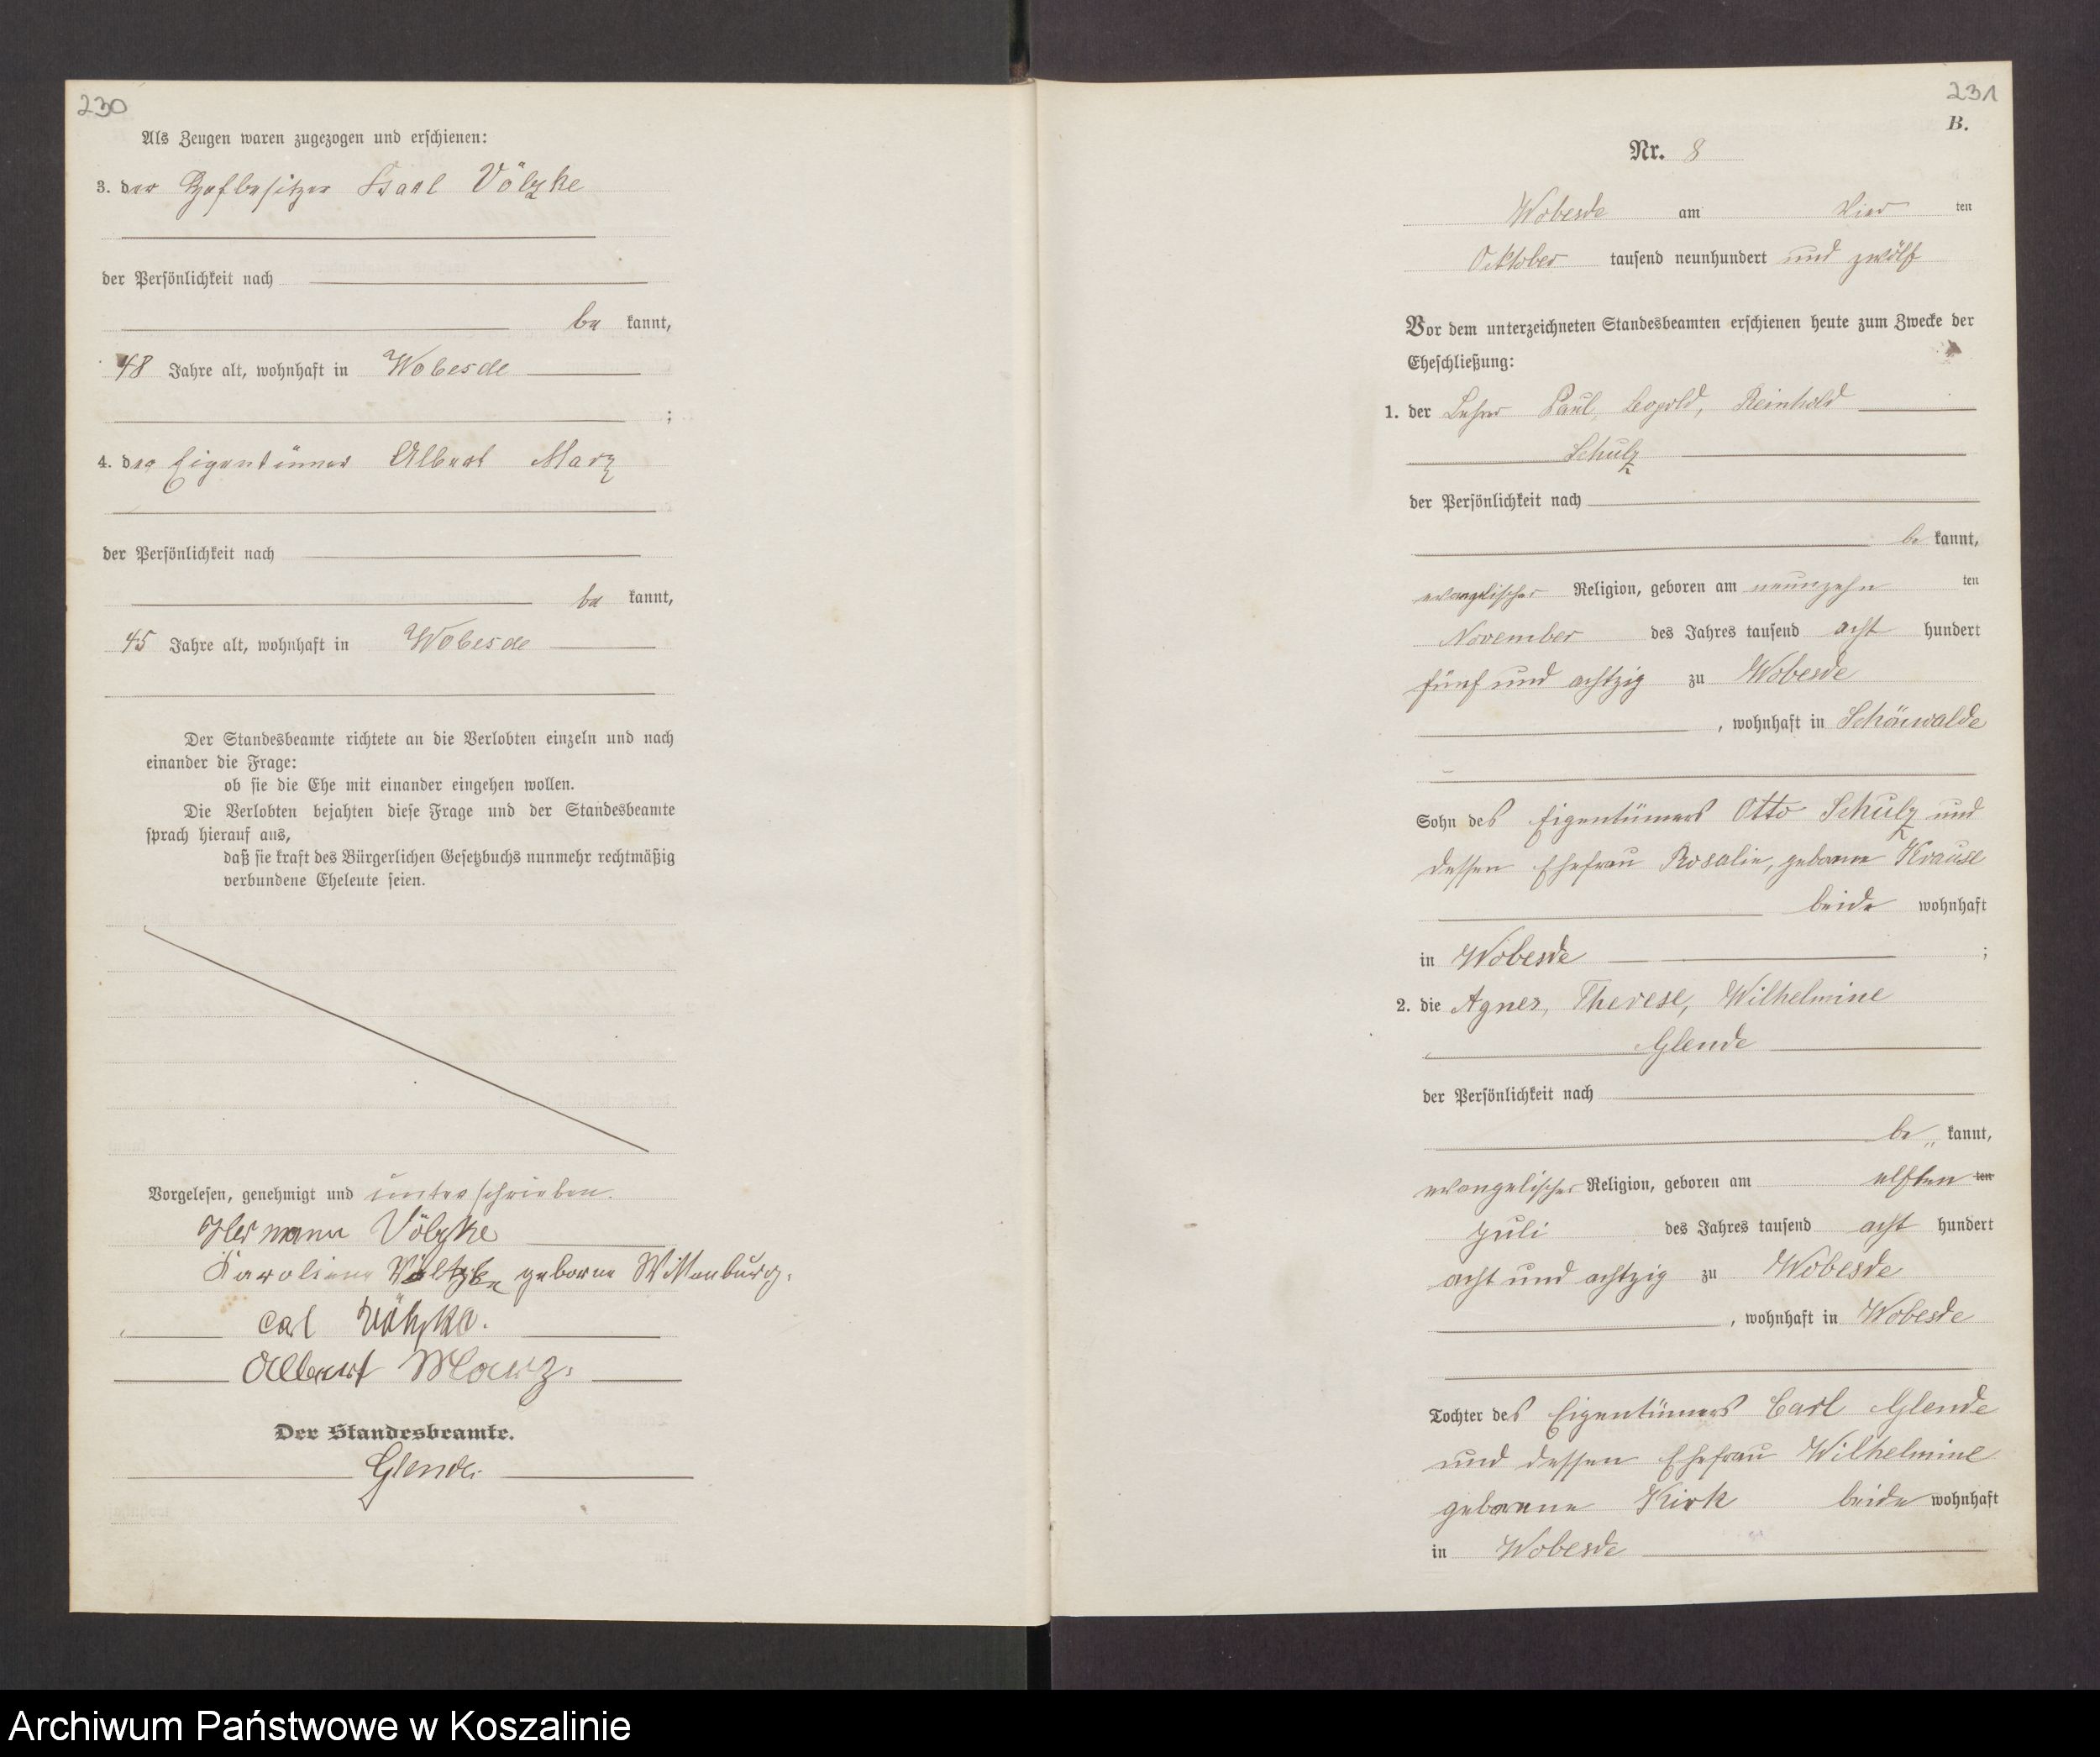 230
Als Zeugen waren zugezogen und erschienen:
3. der Hofbesitzer Karl Völzke
der Persönlichkeit nach
be kannt,
48 Jahre alt, wohnhaft in Wobesde
;
4. der Eigentümer Albert Marz
der Persönlichkeit nach
be kannt,
45 Jahre alt, wohnhaft in Wobesde
Der Standesbeamte richtete an die Verlobten einzeln und nach
einander die Frage:
ob sie die Ehe mit einander eingehen wollen.
Die Verlobten bejahten diese Frage und der Standesbeamte
sprach hierauf aus,
daß sie kraft des Bürgerlichen Gesetzbuchs nunmehr rechtmäßig
verbundene Eheleute seien.
Vorgelesen, genehmigt und unterschrieben.
Hermann Völzke
Karoline Völtzke geborne Wittenburg.
Carl Völzke.
Albert Marz.
Der Standesbeamte.
Glende.
231
B.
Nr. 8
Wobesde am vier ten
Oktober tausend neunhundert und zwölf
Vor dem unterzeichneten Standesbeamten erschienen heute zum Zwecke der
Eheschließung:
1. der Lehrer Paul, Leopold, Reinhold
Schulz
der Persönlichkeit nach
be kannt,
evangelischer Religion, geboren am neunzehn ten
November des Jahres tausend acht hundert
fünf und achtzig zu Wobesde
, wohnhaft in Schönwalde
Sohn des Eigentümers Otto Schulz und
dessen Ehefrau Rosalie, geborne Krause
beide wohnhaft
in Wobesde ;
2. die Agnes, Therese, Wilhelmine
Glende
der Persönlichkeit nach
be kannt,
evangelischer Religion, geboren am elften ten
Juli des Jahres tausend acht hundert
acht und achtzig zu Wobesde
, wohnhaft in Wobesde
Tochter des Eigentümers Carl Glende
und dessen Ehefrau Wilhelmine
geborene Kirk beide wohnhaft
in Wobesde
Archiwum Państwowe w Koszalinie